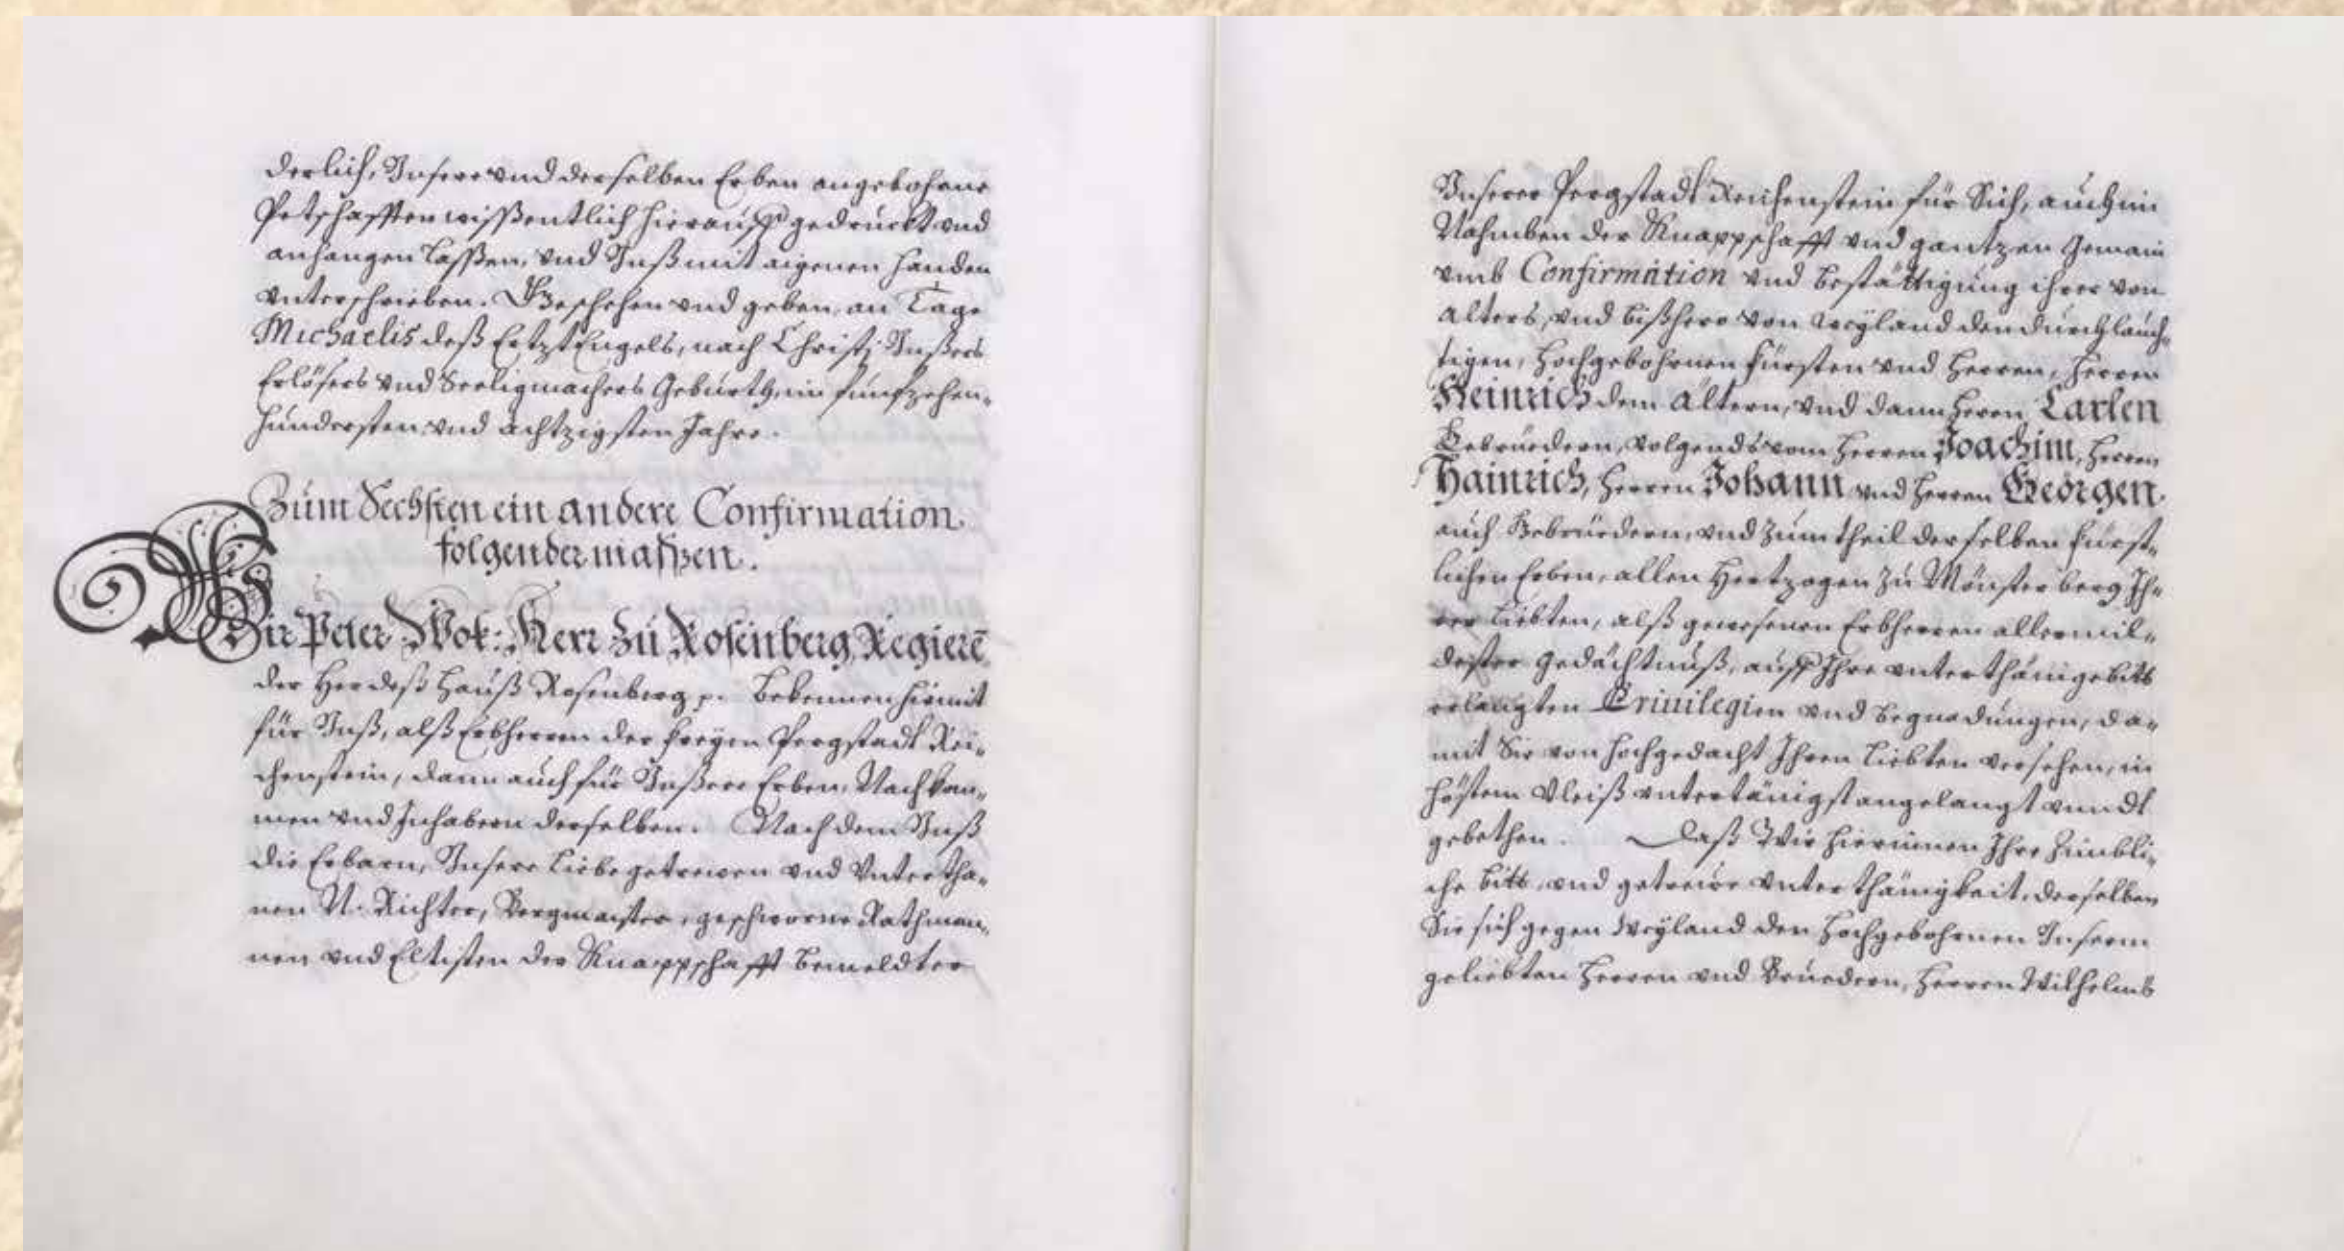 derlich, Unsere und derselben Erben angebohrne
Petschafften wissentlich hierauff gedruckt und
anhangen lassen, und Unß mit aigenen Handen
unterschrieben. Geschehen und geben, an Tage
Michaelis deß ErtztEngels, nach Christj Unßers
Erlösers und Seeligmachers Geburth, im funfzehen-
hundersten und achtzigsten Jahre.
Zum Sechsten ein andere Confirmation
folgender massen.
Wir Peter Wok: Herr Zu Rosenberg, Regiere
der Her deß Hauß Rosenberg p. Bekennen hiemit
für Unß, alß Erbherren der freyen Pergstadt Rei-
chenstein, dann auch für Unßere Erben, Nachkom-
men und Inhabern derselben. Nach dem Unß
die Erbarn, Unsere Liebe getrewen und Untertha-
nen N. Richter, Bergmaister, geschworne Rathman-
nen und Eltisten der Knappschafft bemeldter
Unserer Pergstadt Reichenstein für Sich, auch im
Nahmben der Knappschafft und gantzen Gemain
umb Confirmation und Bestättigung ihrer von
alters, und bißhero von weyland den durchlauch-
tigen, Hochgebohrnen Fürsten und Herren, Herren
Heinrich dem Altern, und dann Herrn Carlen
Gebruedern, volgends vom Herren Joachim, Herren
Hainrich, Herren Johann und Herren Geörgen
auch Gebruedern, und zum theil derselben Fürst-
lichen Erben, allen Hertzogen zu Mönsterberg Ih-
rer Liebten, alß gewesenen Erbherren allermil-
dester Gedächtnuß, auff Ihre unterthänige bitt
erlangten Priuilegien und Begnadungen, da-
mit Sie von Hochgedacht Ihren Liebten versehen, in
höstem Vleiß untertänigst angelangt unndt
gebethen. Daß Wir hierinnen Ihre Zimbli-
che bitt, und getreüe unterthänigkeit, derselben
Sie sich gegen Weyland den Hochgebohrnen Unserm
geliebten Herren und Bruedern, Herren Wilhelms